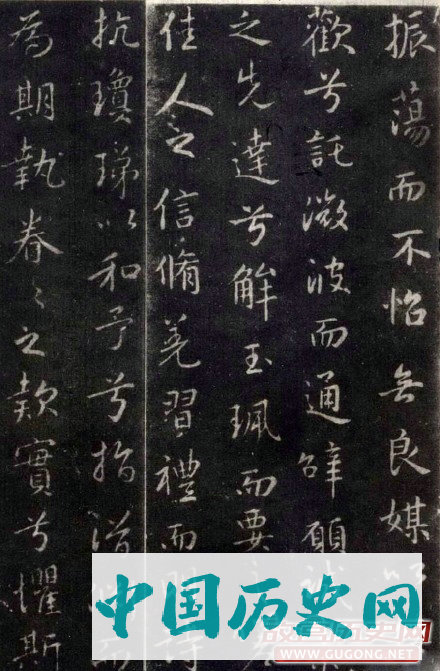 振蕩而不怡無良媒
歡兮託微波而通辭願
之先達兮解玉珮而要
佳人之信脩羌習禮而
抗瓊珶以和予兮指潛
為期執眷〻之款實兮懼斯
中国历史网
WWW.GUGONG.NET